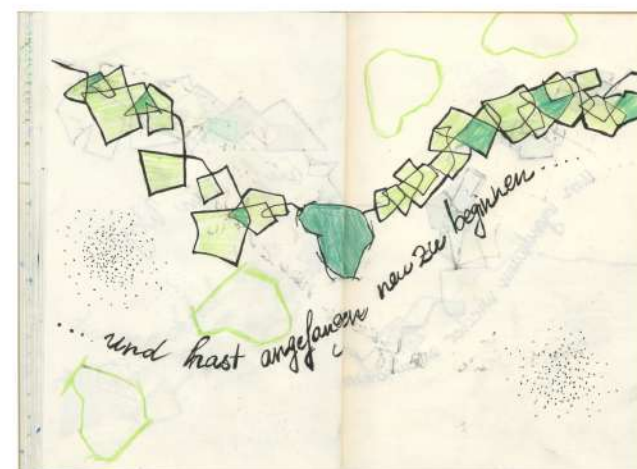 .... und hast angefangen neu zu beginnen ....